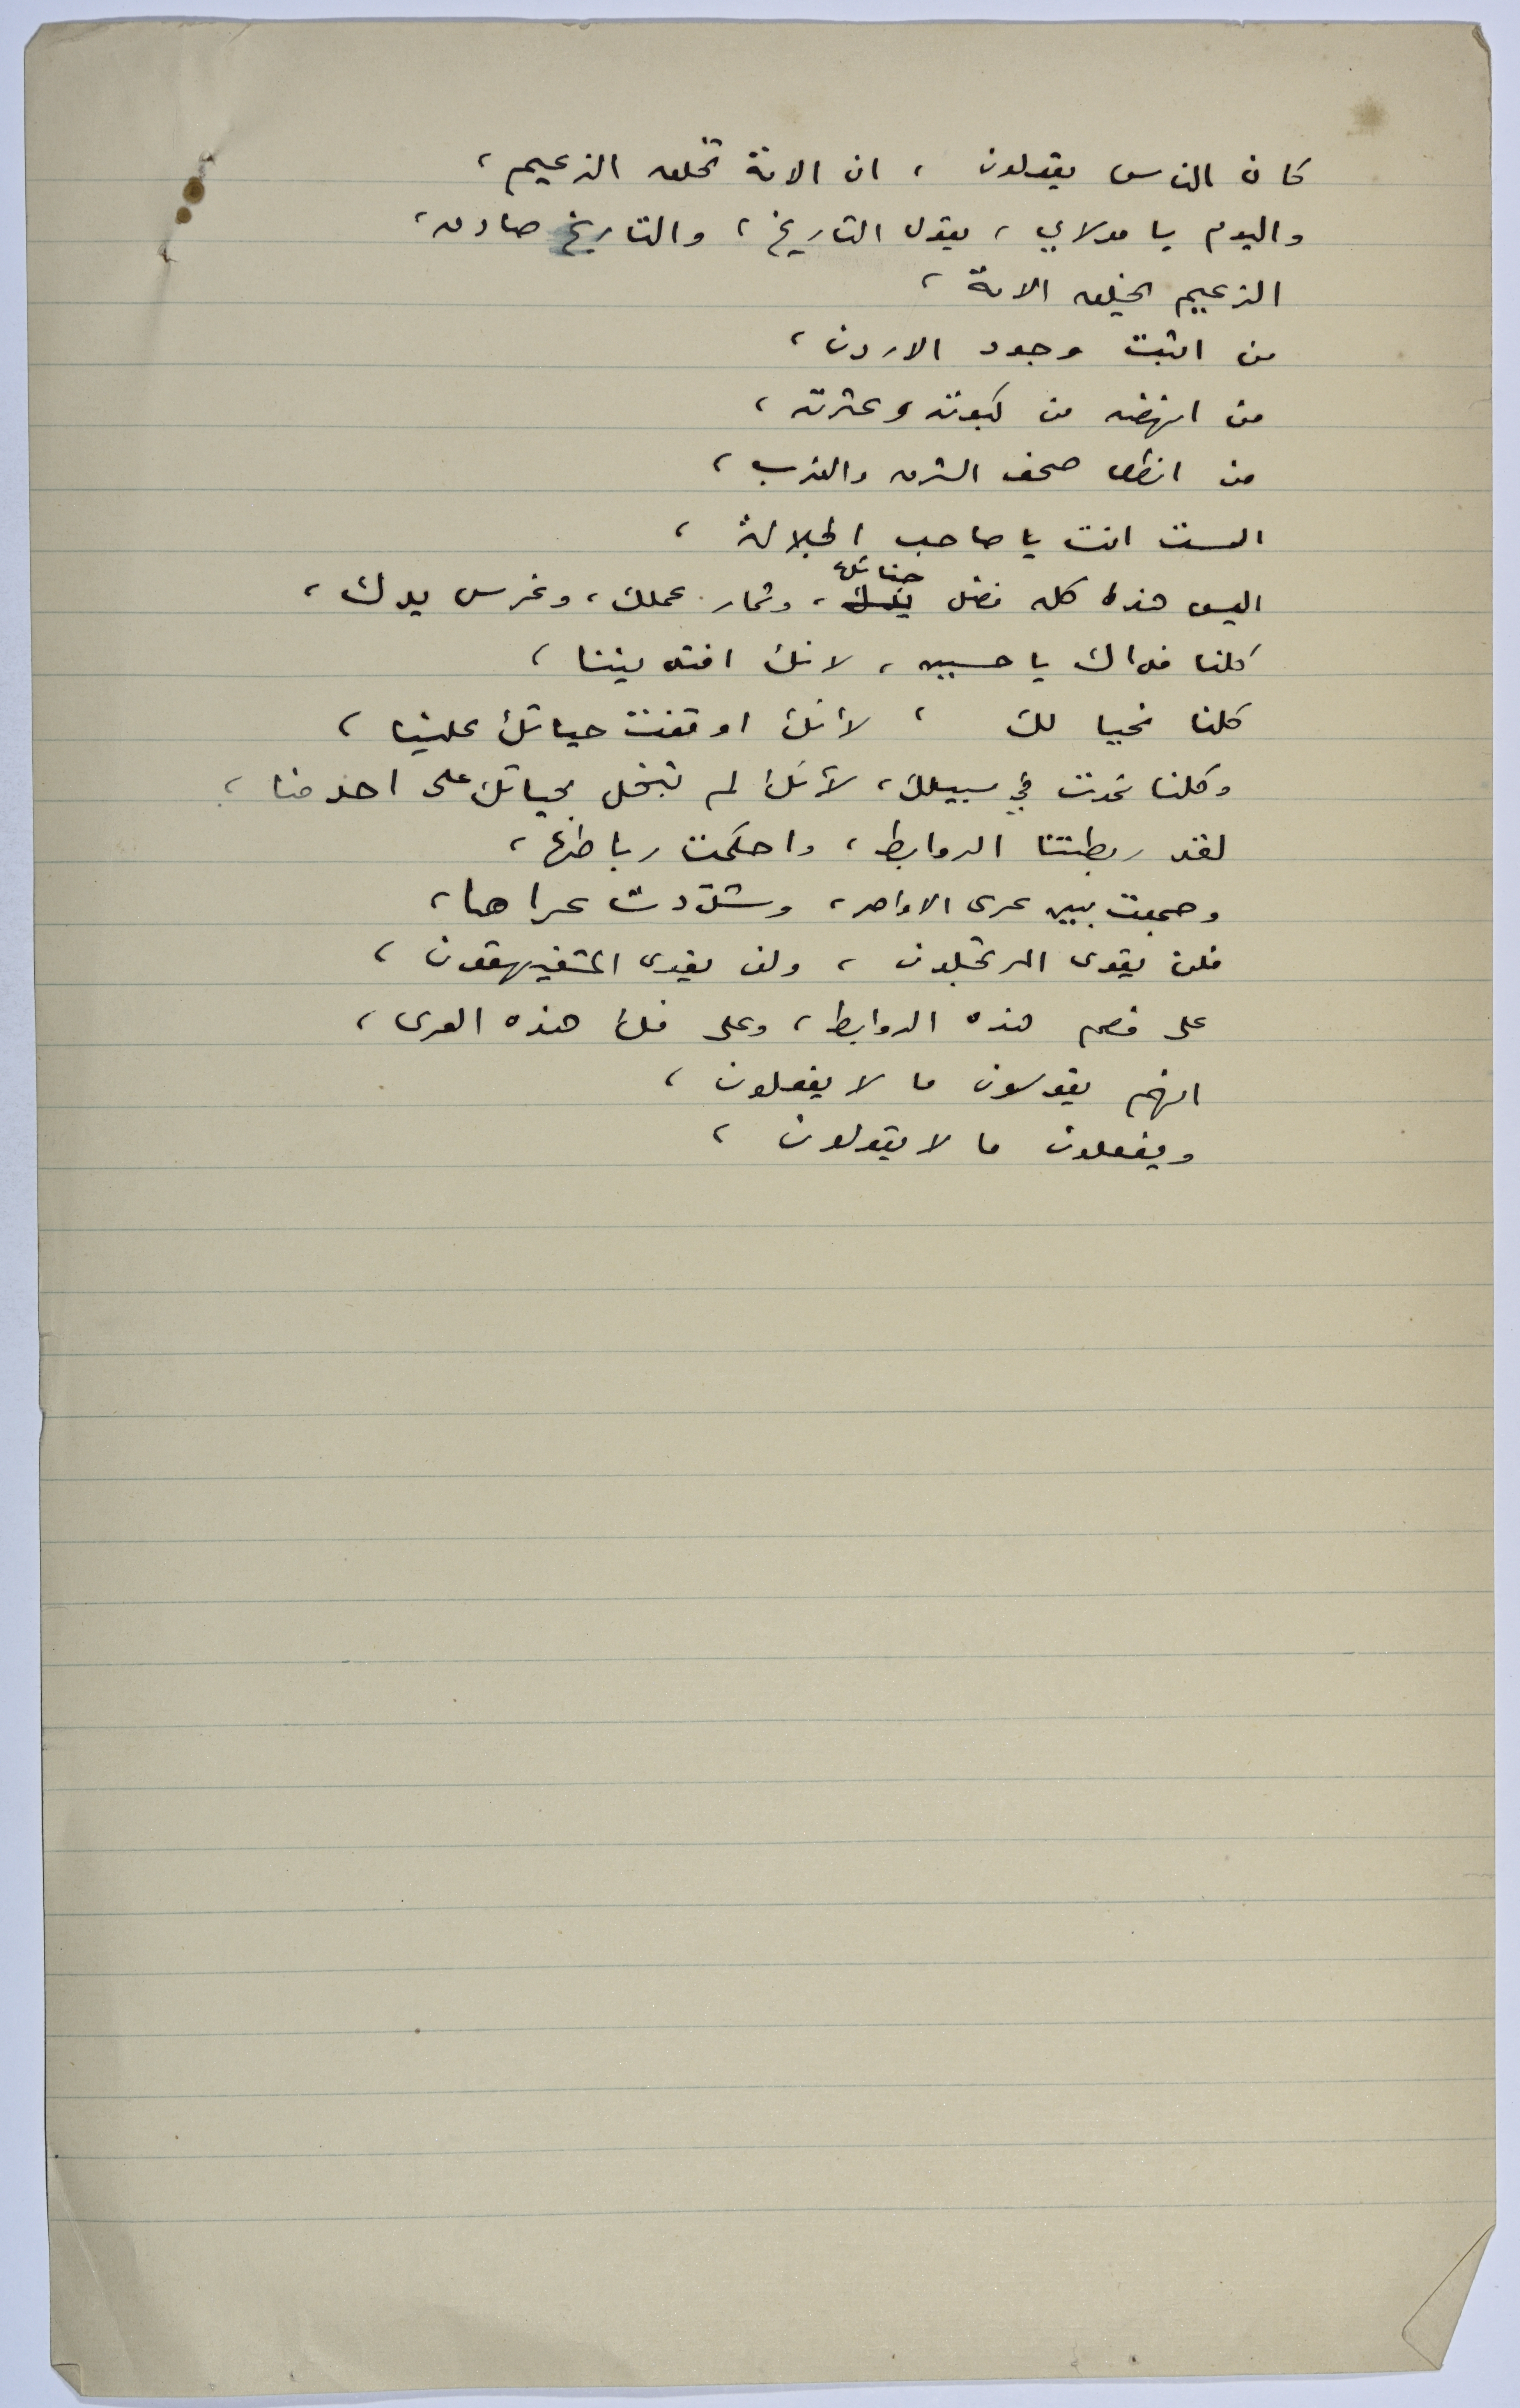 كان الناس يقولون ، ان الامة تخلق الزعيم ،
واليوم يا مولاي ، يقول التاريخ ، والتاريخ صادق ،
الزعيم يخلق الامة ،
من اثبت وجود الاردن ،
من انهضه من كبوته وعثرته ،
من انطق صحف الشرق والغرب ،
الست انت يا صاحب الجلالة ،
حنانك
اليس هذا كله فضل ، وثمار عملك ، وغرس يدك ،
كلنا فداك يا حسين ، لانك افتديتنا ،
كلنا نحيا لك ، لأنك اوقفت حياتك علينا ،
وكلنا نموت في سبيلك ، لأنك لم تبخل بحياتك على احد منا ،
لقد ربطتنا الروابط ، واحكمت رباطها ،
وجمعت بين عرى الاواصر ، وشدّدت عراها ،
فلن يقوى المرتجلون ، ولن يقوى المتفيهقون ،
على فصم هذه الروابط ، وعلى فك هذه العرى ،
انهم يقولون ما لا يفعلون ،
ويفعلون ما لا يقولون ،